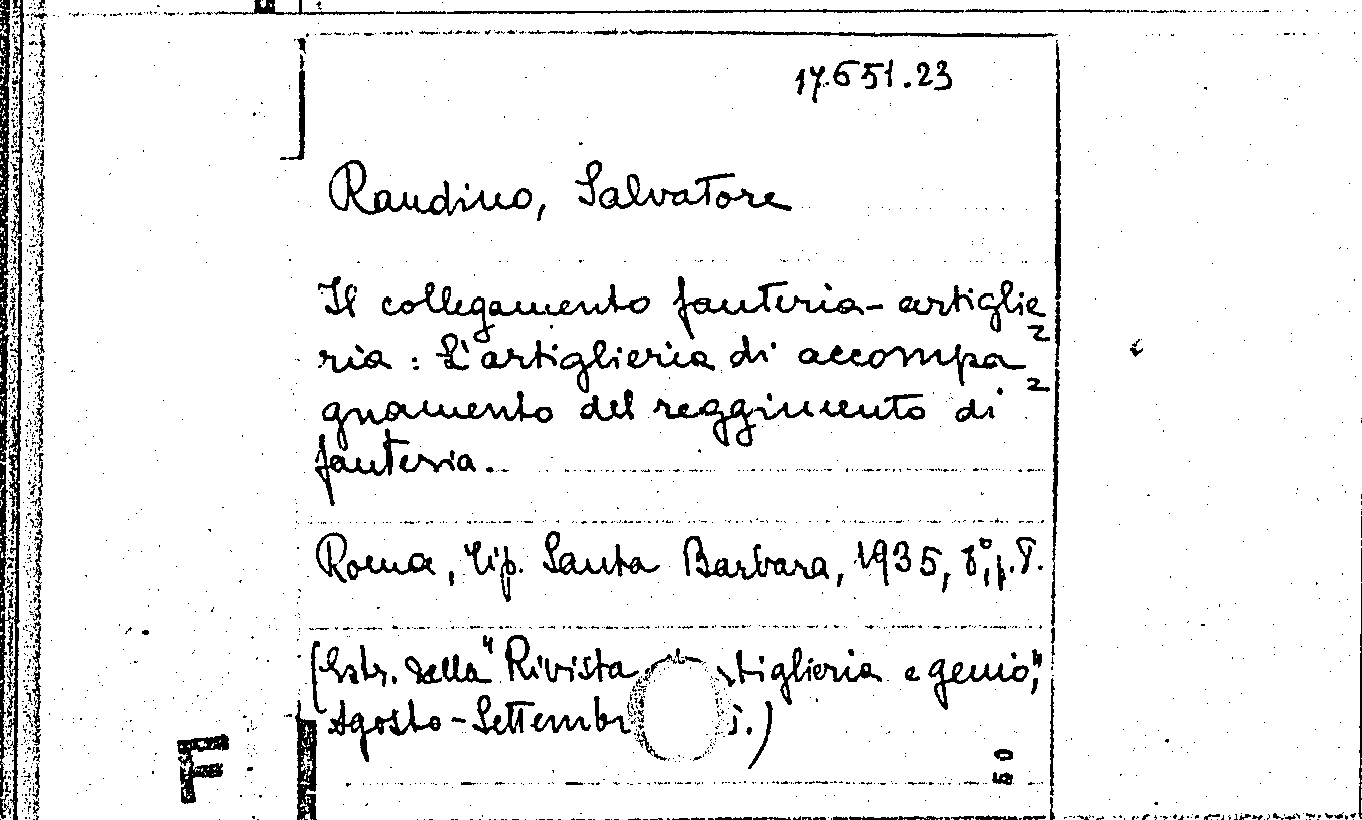 17.651.23
Randino, Salvatore
Il collegamento fanteria-artiglie=
ria: L'artiglieria di accompa=
gnamento del reggimento di
fanteria.
Roma, Tip. Santa Barbara, 1935, 8°, p. 8.
(Estr. dalla "Rivista tiglieria e genio",
Agosto-Settembr 5.)
F
50